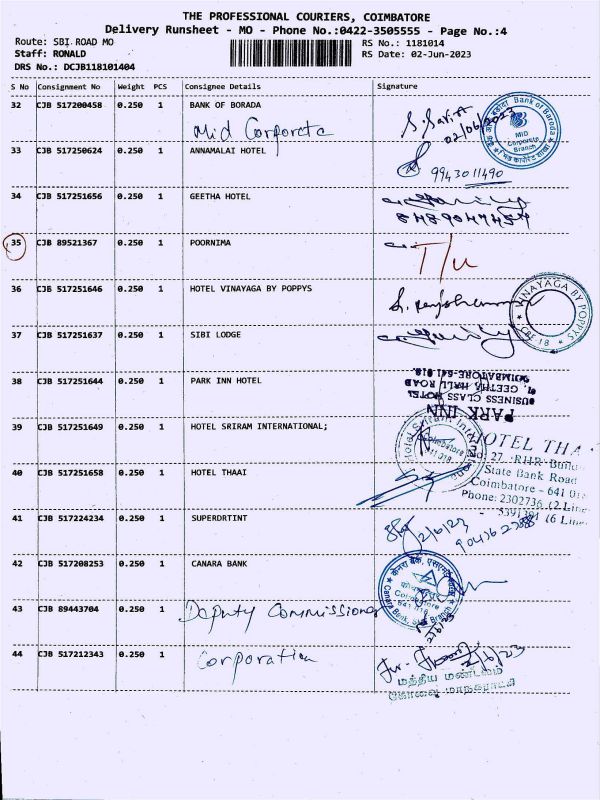 THE PROFESSIONAL COURIERS, COIMBATORE
Delivery Runsheet - MO - Phone No.:0422-3505555 - Page No.:4
Route: SBI ROAD MO
RS No.: 1181014
Staff: RONALD
RS Date: 02-Jun-2023
DRS No.: DCJB118101404
S No Consignment No Weight PCS Consignee Details Signature
32 CJB 517200458 0.250 1 BANK OF BORADA
Mid Corporete
02/06/2023
Bank of Baroda
MID
Corporate
Branch
33 CJB 517250624 0.250 1 ANNAMALAI HOTEL
9943011490
34 CJB 517251656 0.250 1 GEETHA HOTEL
35 CJB 89521367 0.250 1 POORNIMA
36 CJB 517251646 0.250 1 HOTEL VINAYAGA BY POPPYS
VINAYAGA BY POPPYS
CBE 18
37 CJB 517251637 0.250 1 SIBI LODGE
38 CJB 517251644 0.250 1 PARK INN HOTEL
PARK INN
BUSINESS CLASS HOTEL
GEETHA HALL ROAD
COIMBATORE-641 018
39 CJB 517251649 0.250 1 HOTEL SRIRAM INTERNATIONAL;
Hotel Sriram
Coimbatore
641 018
40 CJB 517251658 0.250 1 HOTEL THAAI
HOTEL THA
27,
State Bank Road
Coimbatore - 641 018
Phone: 2302736 (2 Line
5391394 (6 Line
41 CJB 517224234 0.250 1 SUPERDRTINT
2/6/23
42 CJB 517208253 0.250 1 CANARA BANK
Coimbatore
641 018
Canara Bank,
43 CJB 89443704 0.250 1 Deputy Commissioner
44 CJB 517212343 0.250 1 Corporation
மத்திய மண்டலம்
கோவை மாநகராட்சி